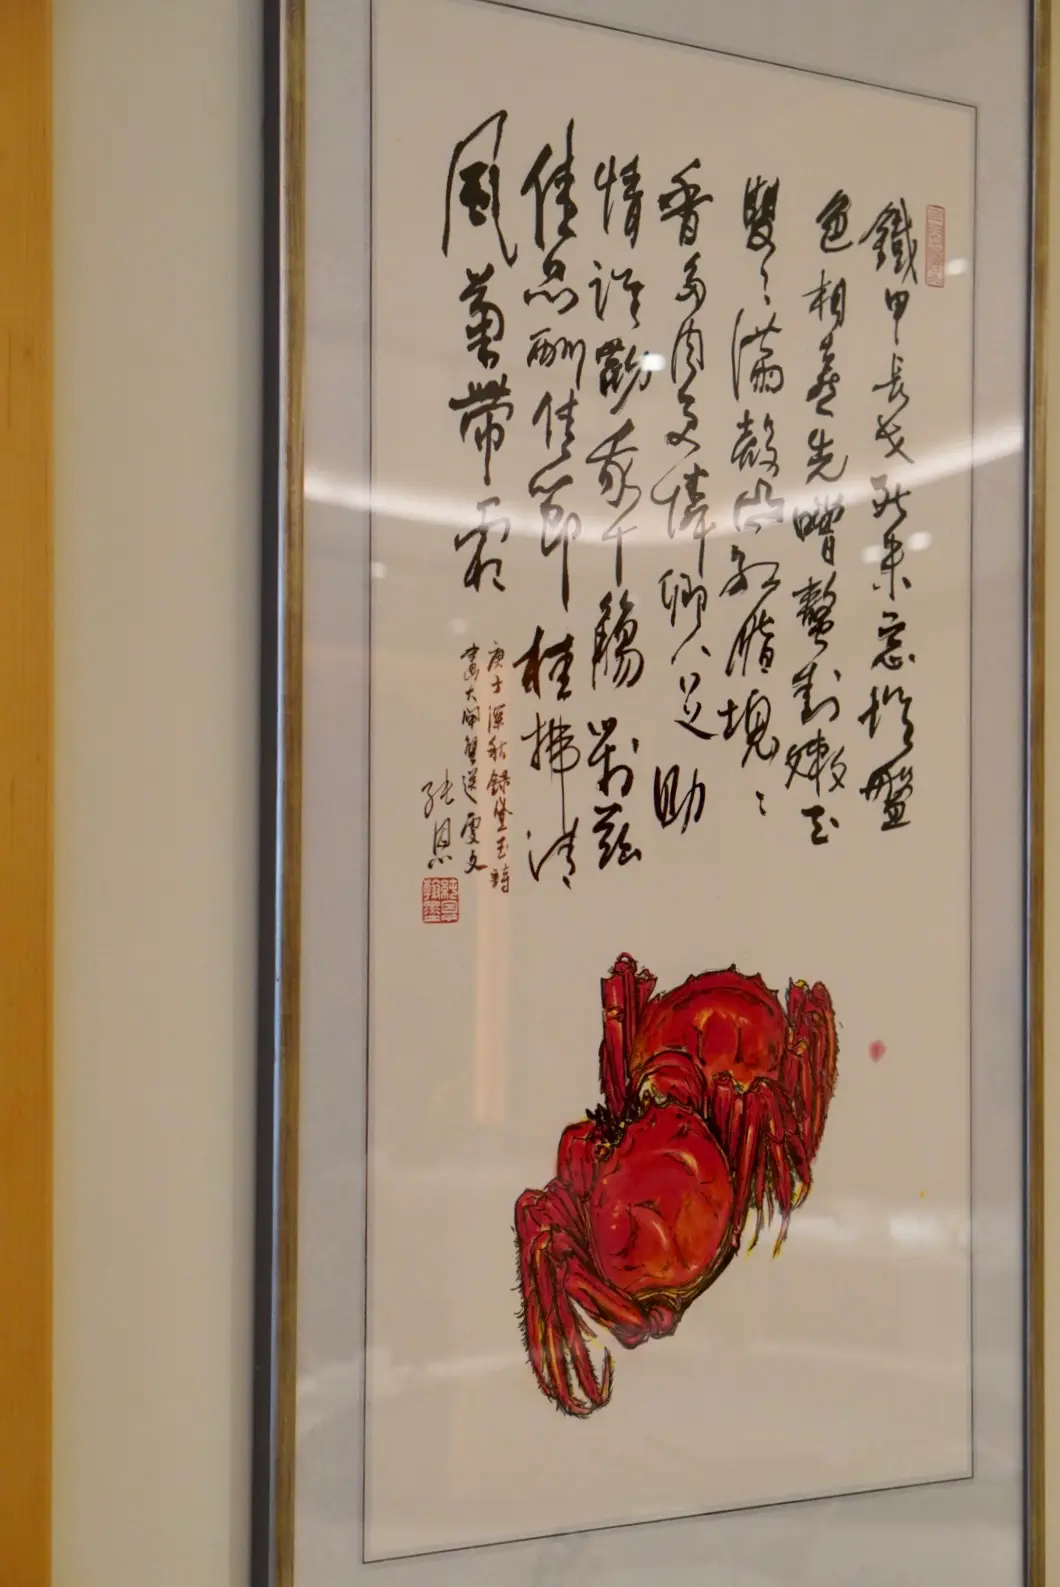 鐵甲長戈死未忘堆盤
色相喜先嚐螯封嫩玉
雙〻滿殼凸紅脂塊〻
香多肉更憐卿八足助
情誰勸我千觴對茲
佳品酬佳節桂拂清
風菊帶霜
庚子深秋錄黛玉詩
畫大閘蟹送文